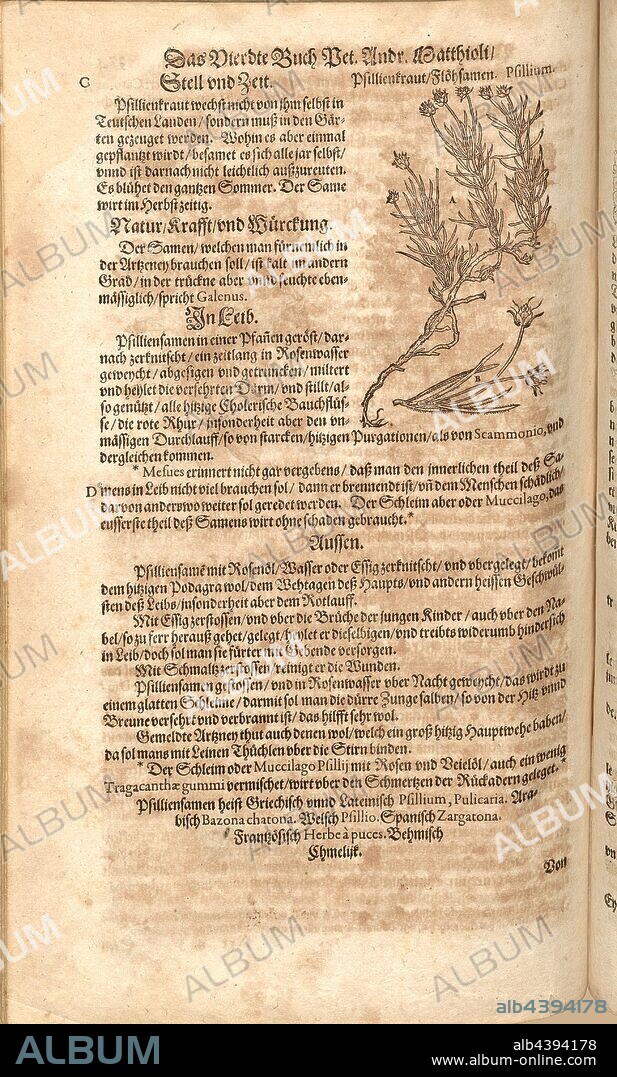 Das Vierdte Buch Pet. Andr. Matthioli/
C Stell vnd Zeit.
Psillienkraut/Flöhsamen. Psillium.
Psillienkraut wechst nicht von jhm selbst in
Teutschen Landen/sondern muß in den Gär-
ten gezeuget werden. Wohin es aber einmal
gepflantzt wirdt/besamet es sich alle jar selbst/
vnnd ist darnach nicht leichtlich außzureuten.
Es blühet den gantzen Sommer. Der Same
wirt im Herbst zeitig.
Natur/Krafft/vnd Würckung.
Der Samen/welchen man fürnemlich in
der Artzeney brauchen soll/ist kalt im andern
Grad/in der trückne aber vnnd feuchte eben-
mässiglich/spricht Galenus.
In Leib.
Psilliensamen in einer Pfañen geröst/dar-
nach zerknitscht/ein zeitlang in Rosenwasser
geweycht/abgesigen vnd getruncken/miltert
vnd heylet die versehrten Därm/vnd stillt/al-
so genützt/alle hitzige Cholerische Bauchflüs-
se/die rote Rhur/insonderheit aber den vn-
mässigen Durchlauff/so von starcken/hitzigen Purgationen/als von Scammonio, vnd
dergleichen kommen.
* Mesues erinnert nicht gar vergebens/daß man den jnnerlichen theil deß Sa-
D mens in Leib nicht viel brauchen sol/dann er brennendt ist/vñ dem Menschen schädlich/
darvon anderswo weiter sol geredet werden. Der Schleim aber oder Muccilago, das
eusserste theil deß Samens wirt ohne schaden gebraucht.*
Aussen.
Psilliensamẽ mit Rosenöl/Wasser oder Essig zerknitscht/vnd vbergelegt/bekomt
dem hitzigen Podagra wol/dem Wehtagen deß Haupts/vnd andern heissen Geschwül-
sten deß Leibs/insonderheit aber dem Rotlauff.
Mit Essig zerstossen/vnd vber die Brüche der jungen Kinder/auch vber den Na-
bel/so zu ferr herauß gehet/gelegt/heylet er dieselbigen/vnd treibts widerumb hindersich
in Leib/doch sol man sie fürter mit Gebende versorgen.
Mit Schmaltz zerstossen/reinigt er die Wunden.
Psilliensamen gestossen/vnd in Rosenwasser vber Nacht geweycht/das wirdt zu
einem glatten Schleime/darmit sol man die dürre Zunge salben/so von der Hitz vnnd
Breune versehrt vnd verbrannt ist/das hilfft sehr wol.
Gemeldte Artzney thut auch denen wol/welch ein groß hitzig Hauptwehe haben/
da sol mans mit Leinen Thüchlen vber die Stirn binden.
* Der Schleim oder Muccilago Psillij mit Rosen vnd Veielöl/auch ein wenig
Tragacanthæ gummi vermischet/wirt vber den Schmertzen der Rückadern geleget.*
Psilliensamen heist Griechisch vnnd Lateinisch Psillium, Pulicaria. Ara-
bisch Bazona chatona. Welsch Psillio. Spanisch Zargatona.
Frantzösisch Herbe à puces. Behmisch
Chmelijk.
Von
alb4394178
ALBUM
alb4394178
www.album-online.com